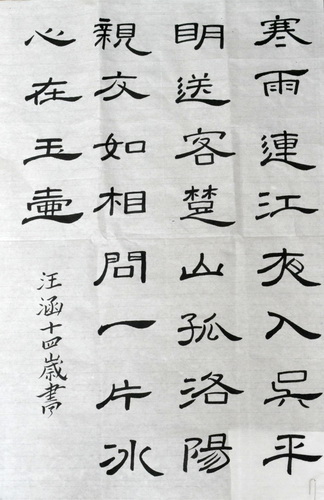 寒雨連江夜入吳平
明送客楚山孤洛陽
親友如相問一片冰
心在玉壷
汪涵十四歲書